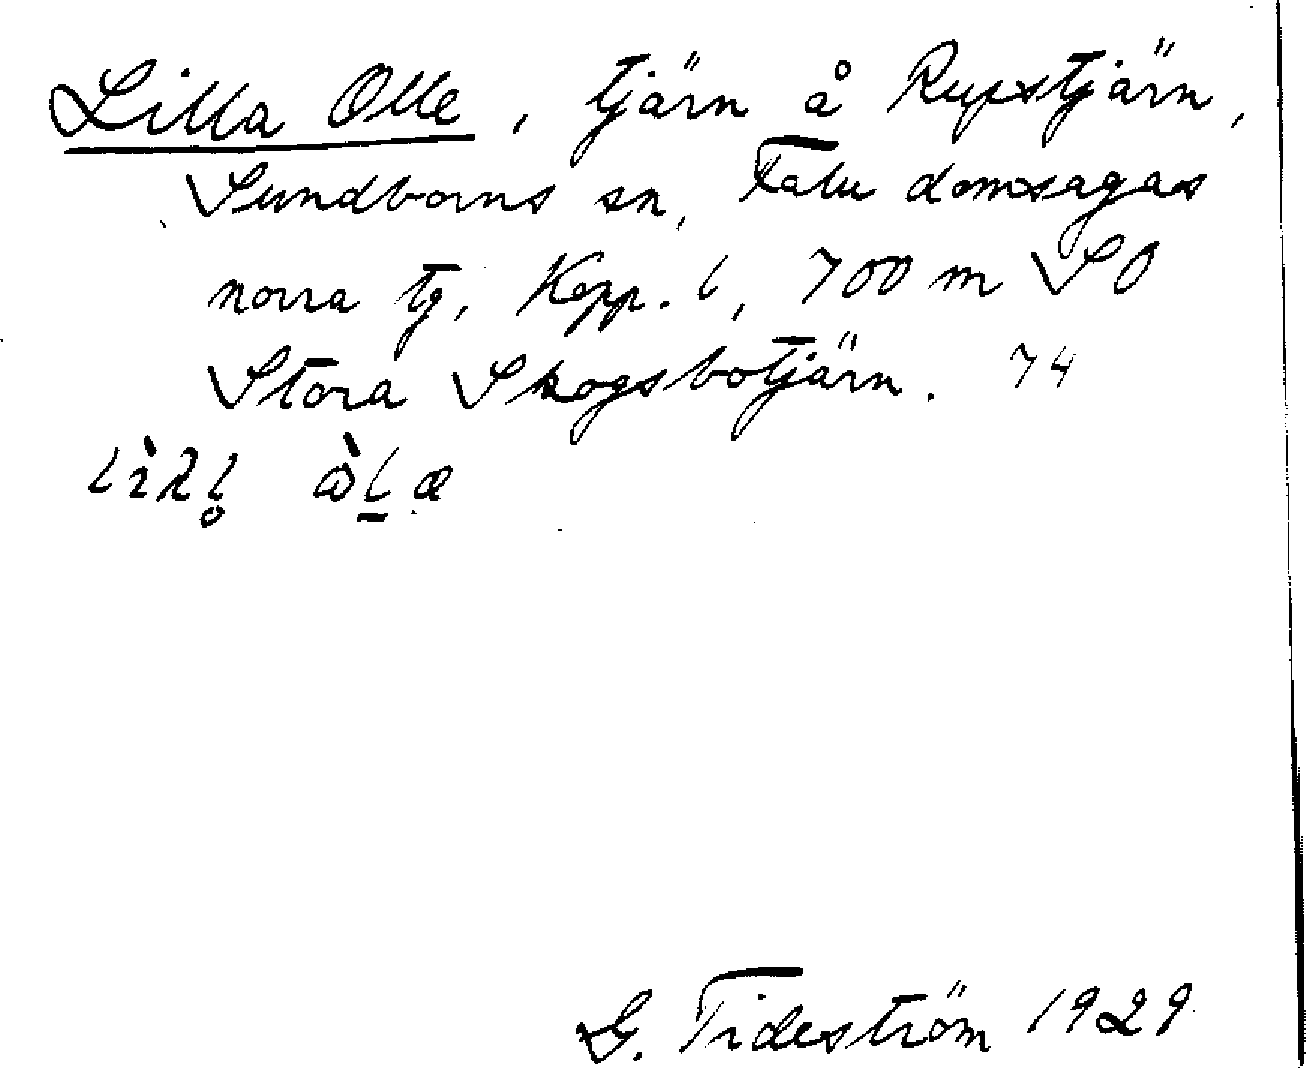 Lilla Olle, tjärn å Rupstjärn,
Sundborns sn, Falu domsagas
norra tg, Kopp. l, 700 m SO
Stora Skogsbotjärn. 74
G. Tideström 1929